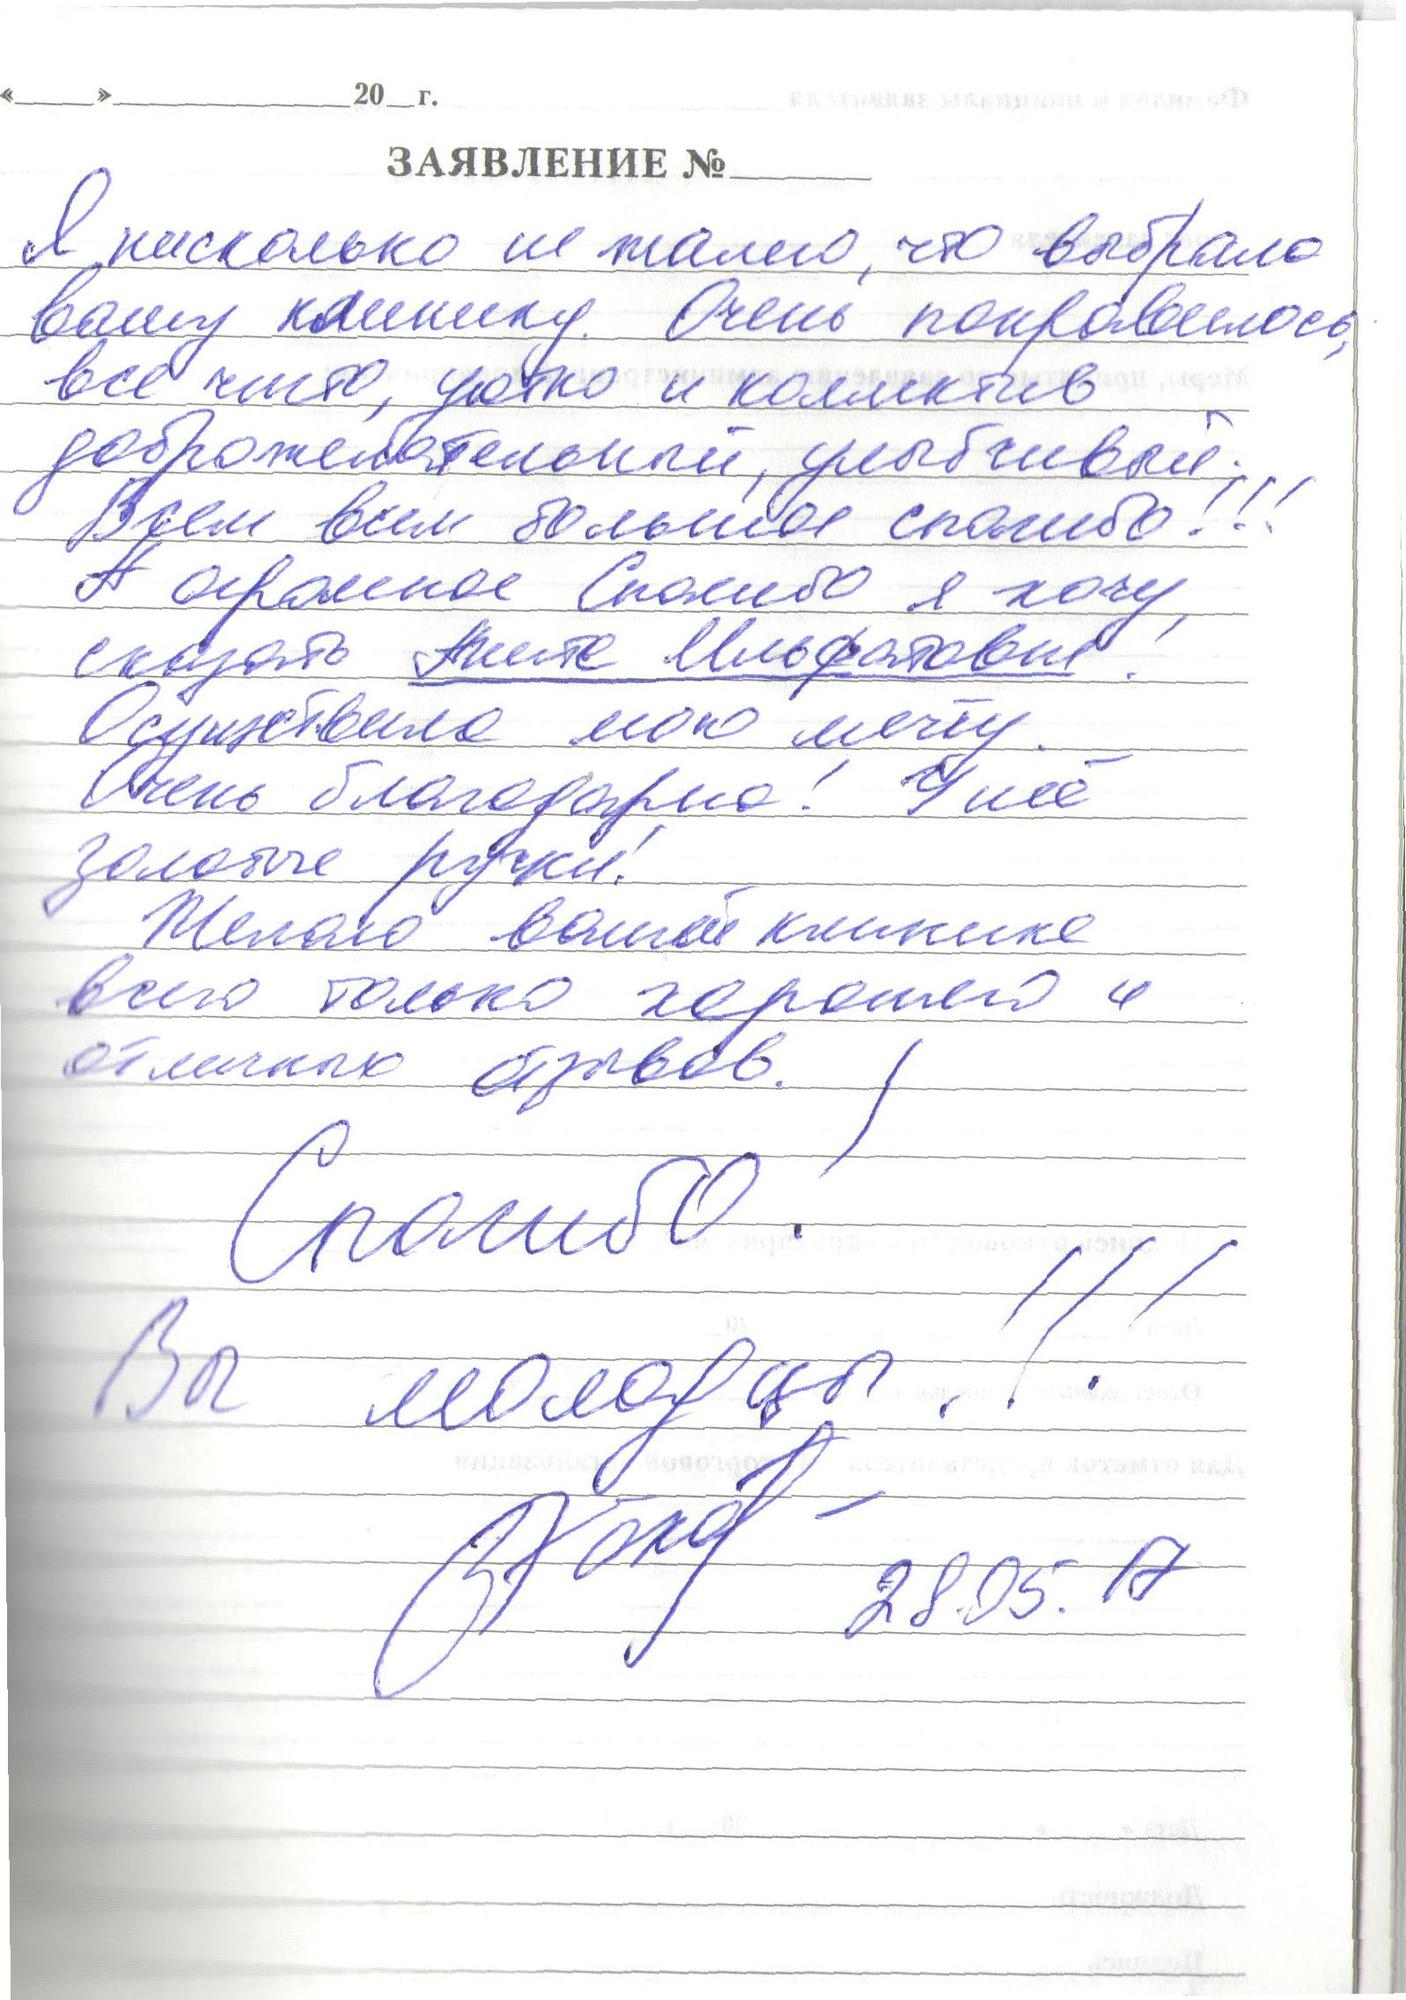 «____»______________20__г.
ЗАЯВЛЕНИЕ №________
Я нисколько не жалею, что выбрала
вашу клинику. Очень понравилось,
все чисто, уютно и коллектив
доброжелательный, улыбчивый.
Всем всем большое спасибо!!!
А огромное Спасибо я хочу
сказать Аните Ильфатовне!
Осуществила мою мечту.
Очень благодарна! У неё
золотые ручки!
Желаю вашей клинике
всего только хорошего и
отличных отзывов.
Спасибо!
Вы молодцы!!!
28.05.17